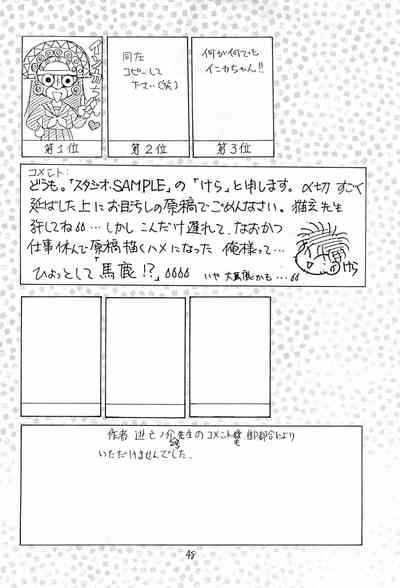 インカちゃん
同左
コピーして
下さい(笑)
何が何でも
インカちゃん!!
第1位
第2位
第3位
コメント:
どうも。「スタジオ・SAMPLE」の「けら」と申します。〆切 すごく
延ばした上にお目汚しの原稿でごめんなさい。猫玄先生
許してね…しかしこんだけ遅れて、なおかつ
仕事休んで原稿描くハメになった 俺様って…
ひょっとして「馬鹿!?」
いや 大馬鹿かも…
けら
作者 先生のコメント等 御都合により
いただけませんでした.
48